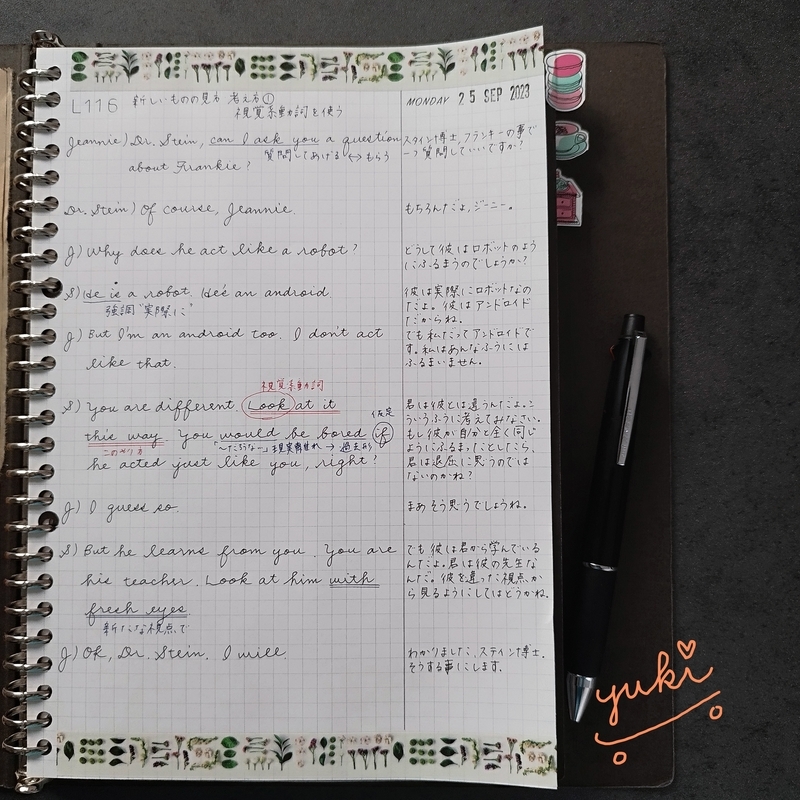 L116 新しいものの見方 考え方①
視覚系動詞を使う
MONDAY 25 SEP 2023
Jeannie) Dr. Stein, can I ask you a question
質問してあげる ↔ もらう
about Frankie?
スタイン博士、フランキーの事で
一つ質問していいですか?
Dr. Stein) Of course, Jeannie
もちろんだよ、ジーニー。
J) Why does he act like a robot?
どうして彼はロボットのよう
にふるまうのでしょうか?
S) He is a robot. He's an android.
強調 "実際に"
彼は実際にロボットなの
だよ。彼はアンドロイド
だからね。
J) But I'm an android too. I don't act
like that.
でも私だってアンドロイドで
す。私はあんなふうには
ふるまいません。
視覚系動詞
S) You are different. Look at it
this way. You would be bored if
このやり方
〜だろうなー
現実離れ → 過去形
仮定
he acted just like you, right?
君は彼とは違うんだよ。こ
ういうふうに考えてみなさい。
もし彼が自分と全く同じ
ようにふるまったとしたら、
君は退屈に思うのでは
ないのかね?
J) I guess so.
まあそう思うでしょうね。
S) But he learns from you. You are
his teacher. Look at him with
fresh eyes
新たな視点で
でも彼は君から学んでいる
んだよ。君は彼の先生な
んだ。彼を違った視点か
ら見るようにしてはどうかね。
J) Ok, Dr. Stein. I will.
わかりました、スタイン博士。
そうする事にします。
yuki